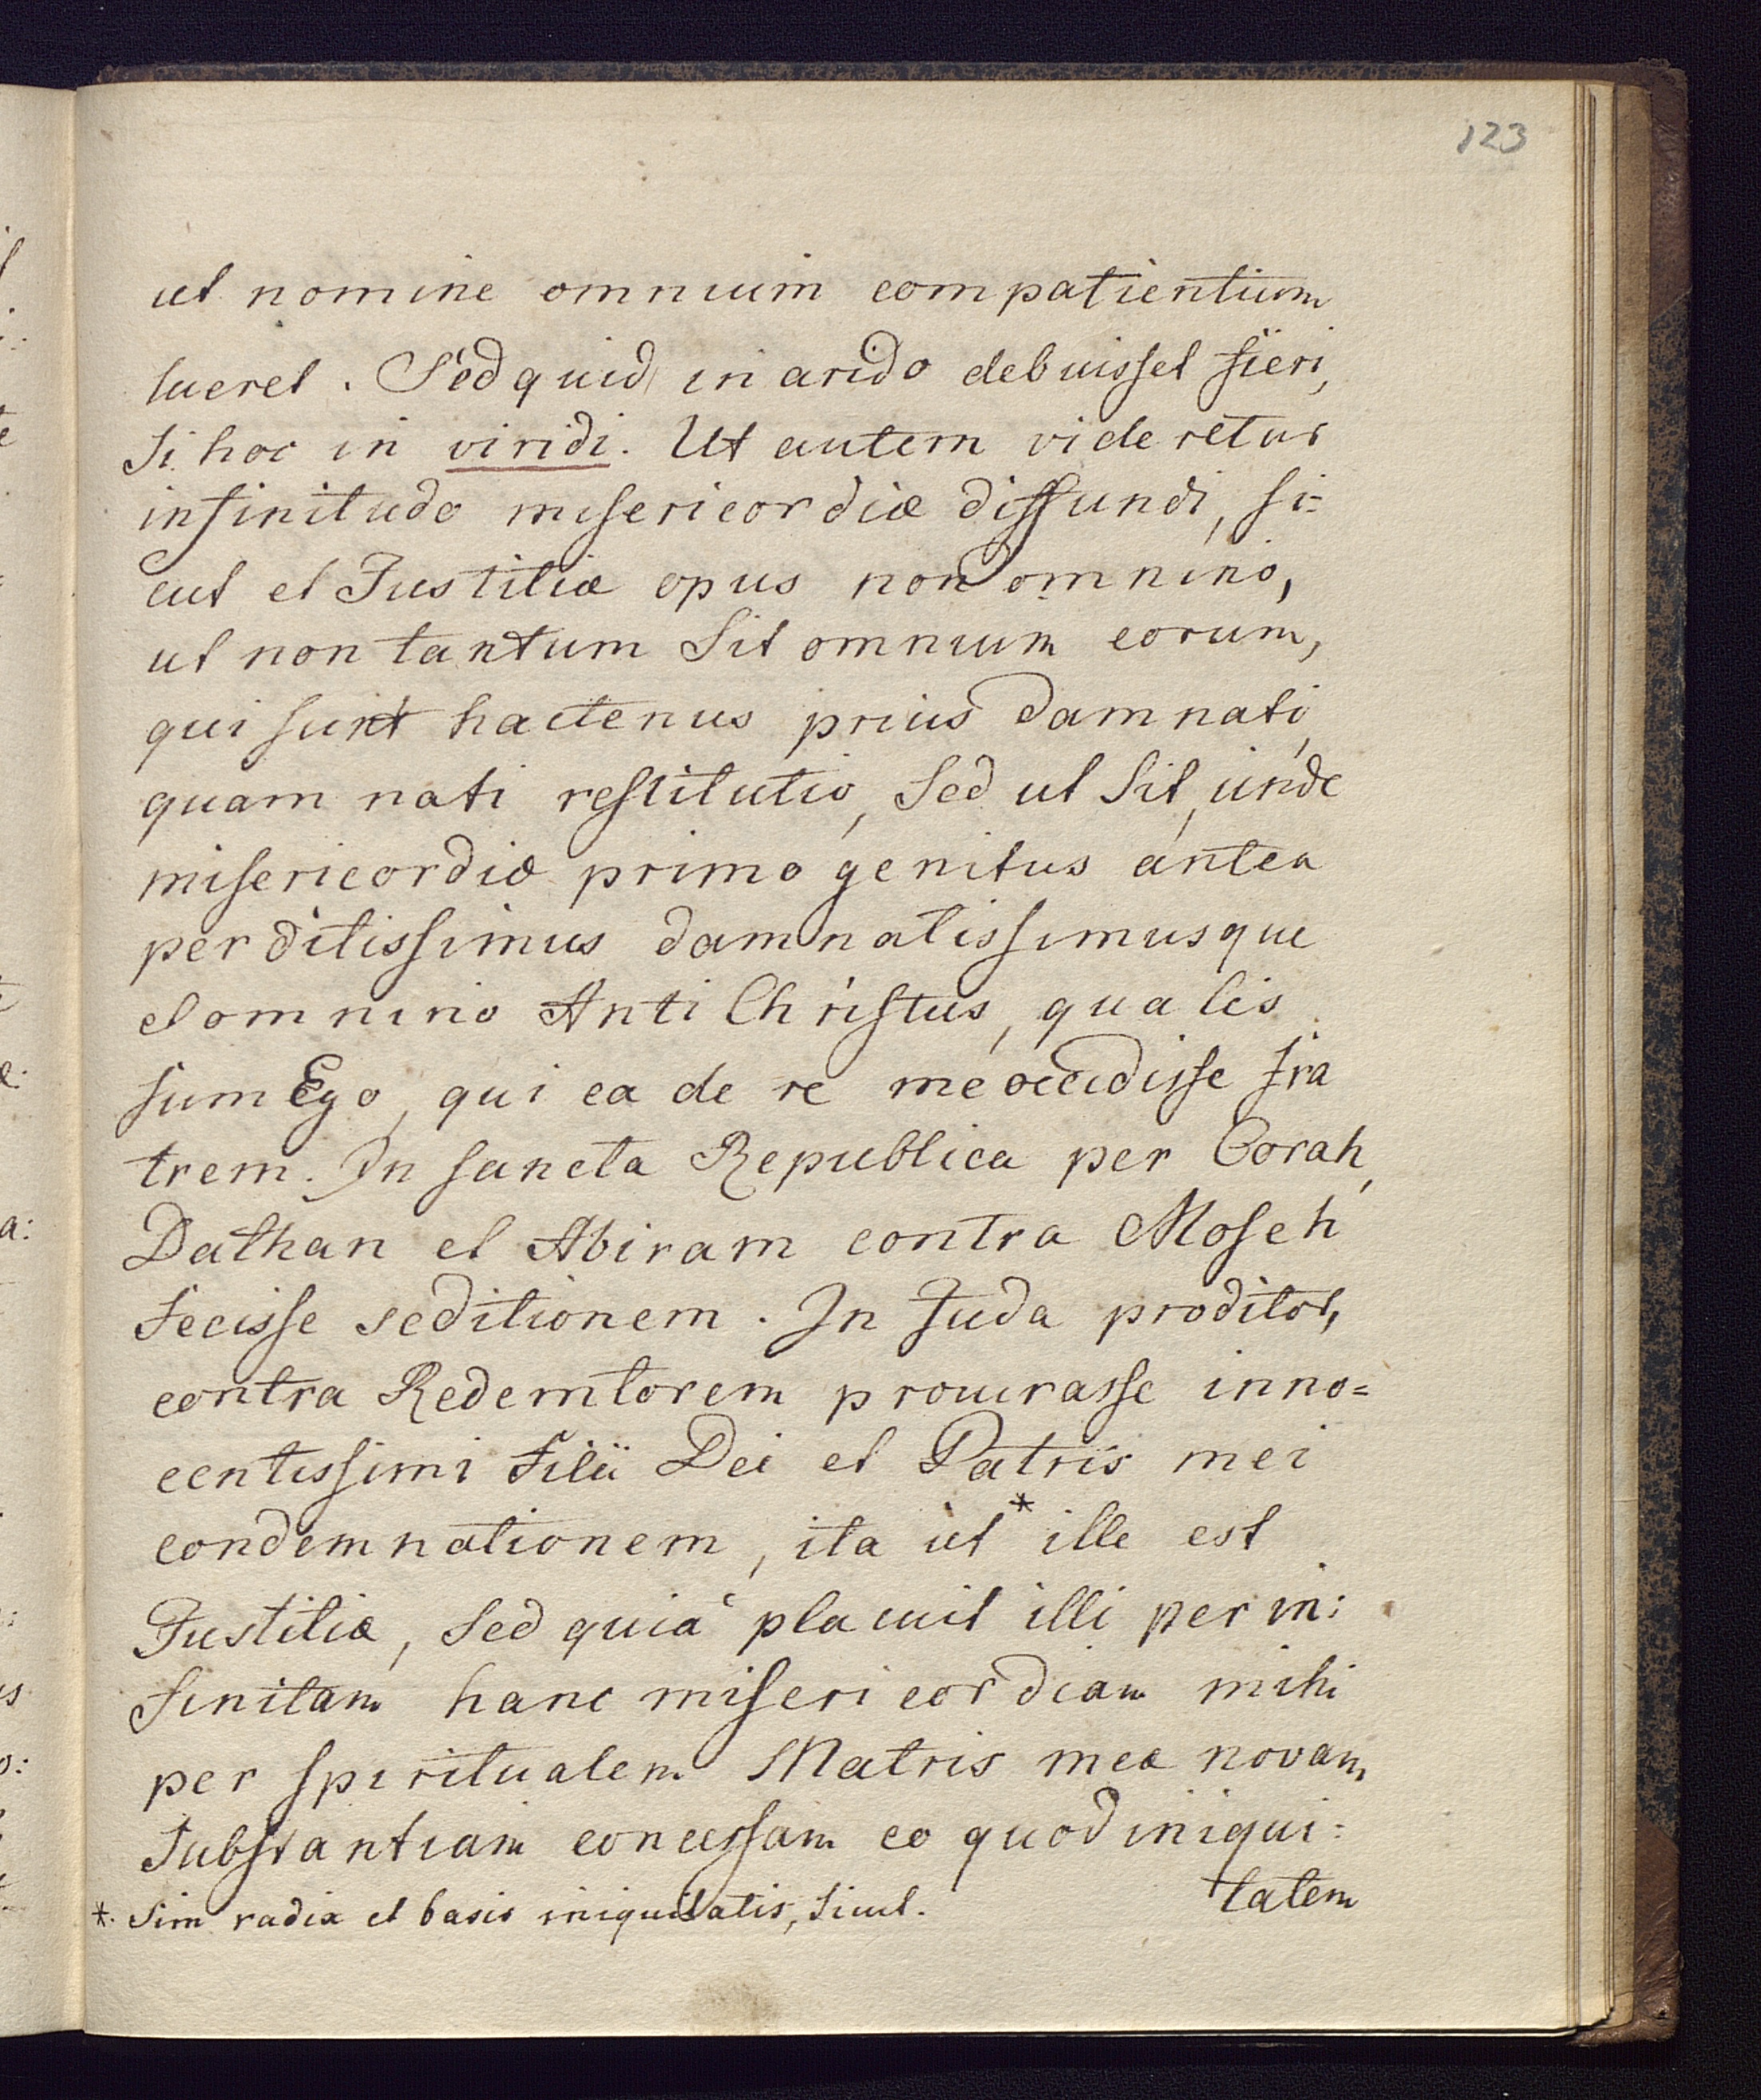 123
ut nomine omnium compatientium
lueret. Sed quid in arido debuisset fieri,
Si hoc in viridi. Ut autem videretur
infinitudo misericordiæ diffundi, si=
cut et Justitiæ opus non omnino,
ut non tantum Sit omnium eorum,
qui sunt hactenus prius damnati,
quam nati restitutio, Sed ut Sit, unde
misericordiæ primo genitus antea
perditissimus damnatissimusque
et omnino Anti Christus, qualis
sum Ego, qui ea de re me occidisse fra
trem. In sancta Republica per Corah,
Dathan et Abiram contra Moseh
fecisse seditionem. In Juda proditor,
contra Redemtorem procurasse inno=
centissimi Filii Dei et Patris mei
condemnationem, ita ut * ille est
Justitiæ, Sed quia placuit illi per in:
finitam hanc misericordiam mihi
per spiritualem Matris meæ novam
Substantiam concessam eo quod iniqui:
tatem
*. Sim radix et basis iniquitatis, Sicut.